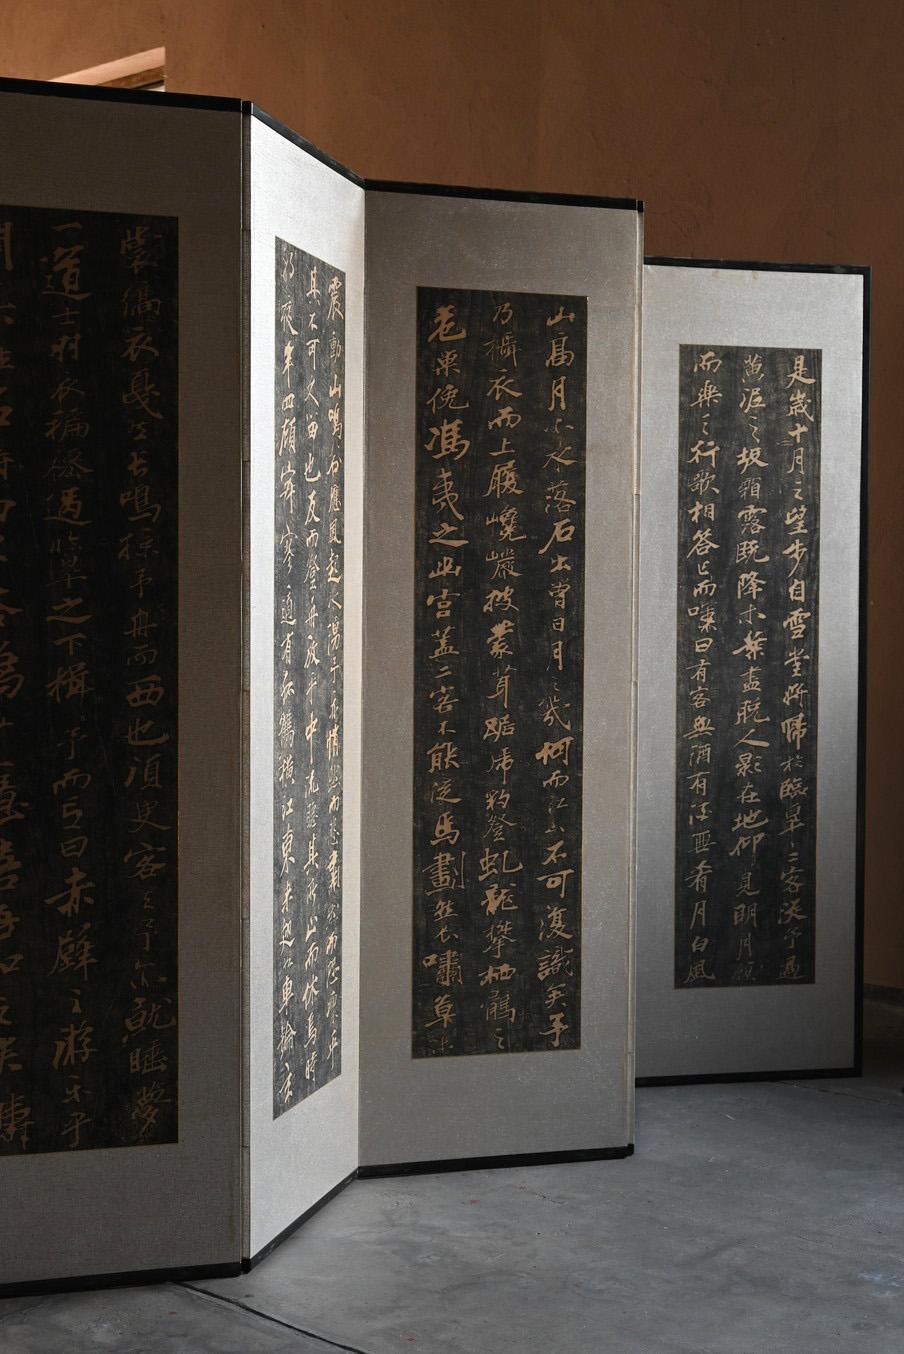 是歳十月之望步自雪堂将歸於臨皐二客從予過
黄泥之坂霜露既降木葉盡脱人影在地仰見明月顧
而樂之行歌相答已而嘆曰有客無酒有酒無肴月白風
山高月小水落石出曾日月之幾何而江山不可復識矣予
乃攝衣而上履巉巖披蒙茸踞虎豹登虬龍攀栖鶻之
危巢俛馮夷之幽宮蓋二客不能從焉劃然長嘯草木
震動山鳴谷應風起水湧予亦悄然而悲肅然而恐凛乎
其不可久留也反而登舟放乎中流聽其所止而休焉時
将夜半四顧寂寥適有孤鶴横江東来翅如車輪玄
裳縞衣戛然長鳴掠予舟而西也須臾客去予亦就睡夢
一道士羽衣翩僊過臨皐之下揖予而言曰赤壁之游樂乎